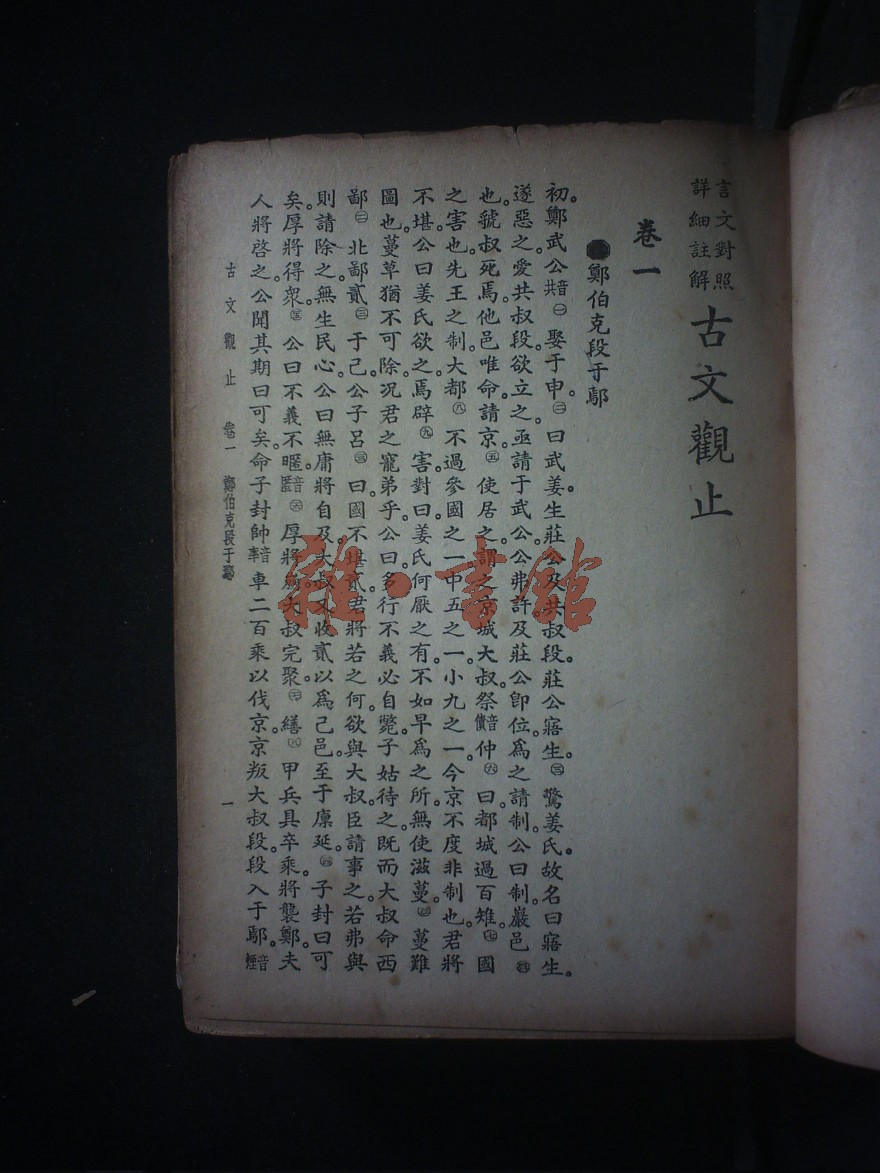 言文對照
詳細註解
古文觀止
卷一
鄭伯克段于鄢
初。鄭武公音共㊀娶于申。㊁曰武姜。生莊公及共叔段。莊公寤生。㊂驚姜氏。故名曰寤生。
遂惡之。愛共叔段。欲立之。亟請于武公。公弗許。及莊公卽位。爲之請制。公曰。制巖邑㊃
也。虢叔死焉。他邑唯命。請京。㊄使居之。謂之京城大叔。祭音債仲㊅曰。都城過百雉。㊆國
之害也。先王之制。大都㊇不過參國之一。中五之一。小九之一。今京不度。非制也。君將
不堪。公曰。姜氏欲之。焉辟㊈害。對曰。姜氏何厭之有。不如早爲之所。無使滋蔓。蔓難
圖也。蔓草猶不可除。況君之寵弟乎。公曰。多行不義必自斃。子姑待之。旣而大叔命西
鄙北鄙貳于己。公子呂曰。國不堪貳。君將若之何。欲與大叔。臣請事之。若弗與
則請除之。無生民心。公曰。無庸。將自及。大叔又收貳以爲己邑。至于廩延。子封曰。可
矣。厚將得衆。公曰。不義不暱。厚將崩。大叔完聚。繕甲兵。具卒乘。將襲鄭。夫
人將啓之。公聞其期。曰。可矣。命子封帥音率車二百乘以伐京。京叛大叔段。段入于鄢。音煙
古文觀止 卷一 鄭伯克段于鄢 一
雜·書館